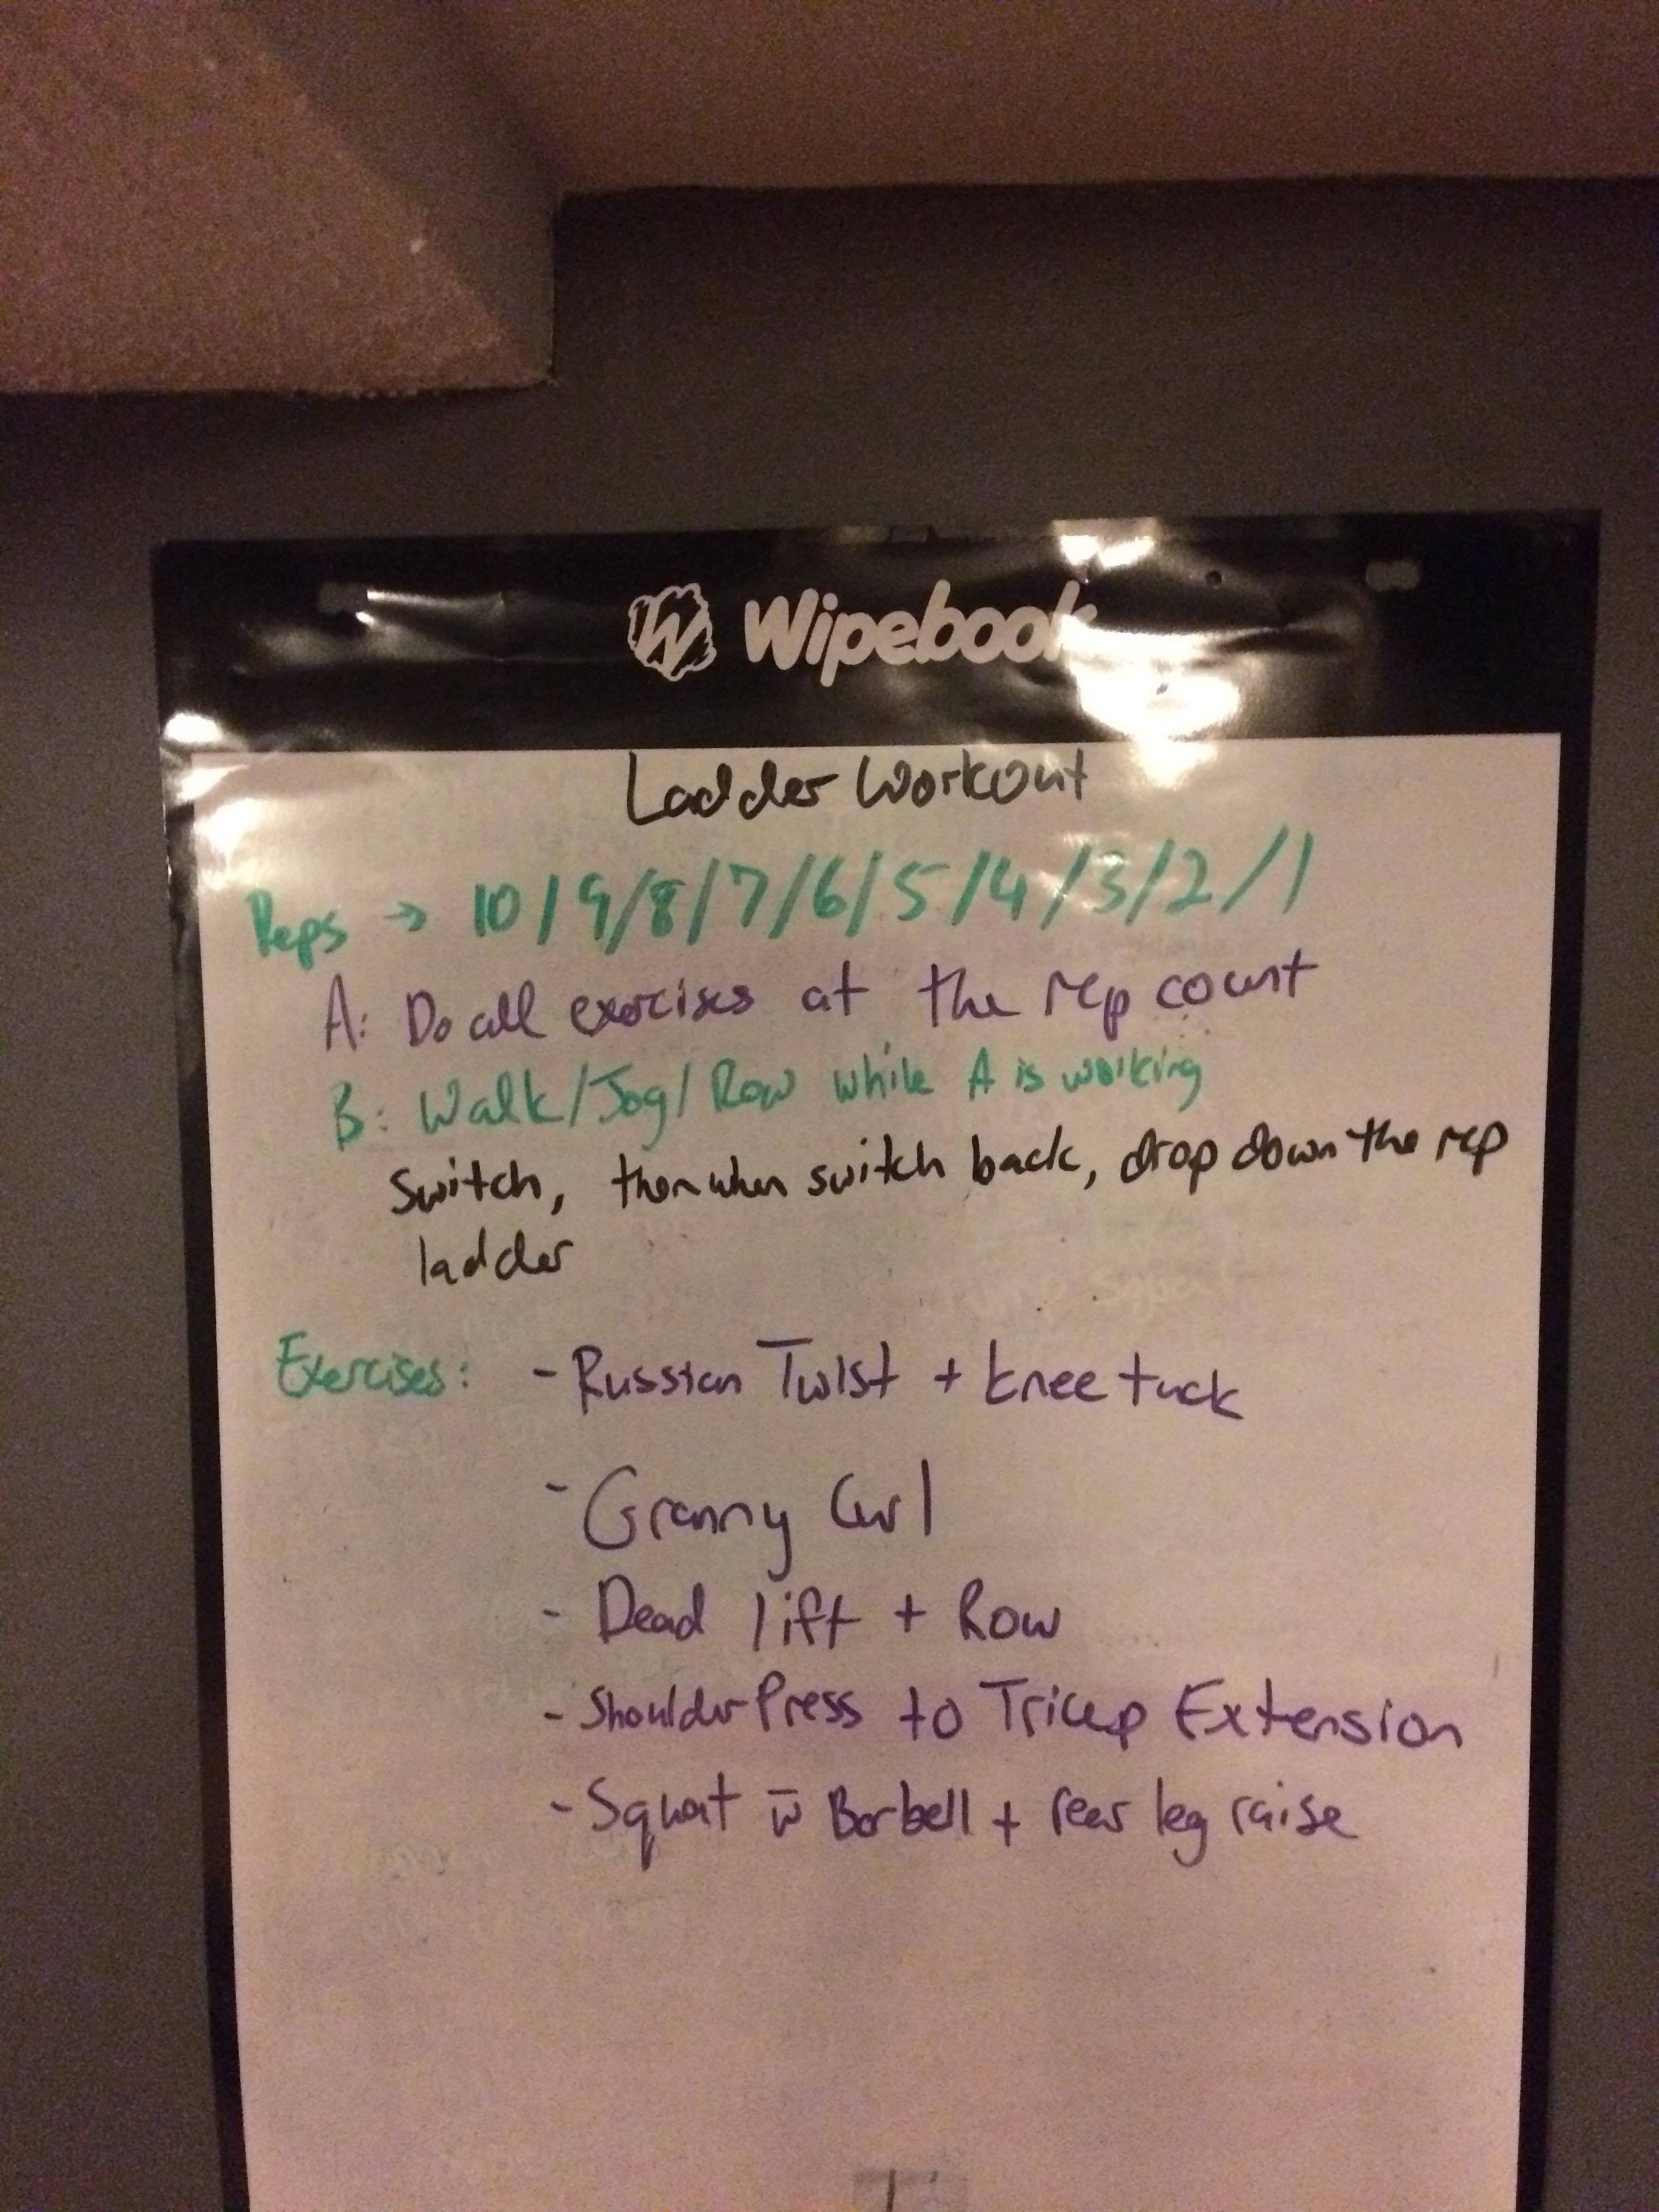 Wipebook
Ladder Workout
Reps → 10/9/8/7/6/5/4/3/2/1
A: Do all exercises at the rep count
B: Walk/Jog/Row while A is working
Switch, then when switch back, drop down the rep
ladder
Exercises: - Russian Twist + knee tuck
- Granny Curl
- Dead lift + Row
- Shoulder Press to Tricep Extension
- Squat w̄ Barbell + rear leg raise